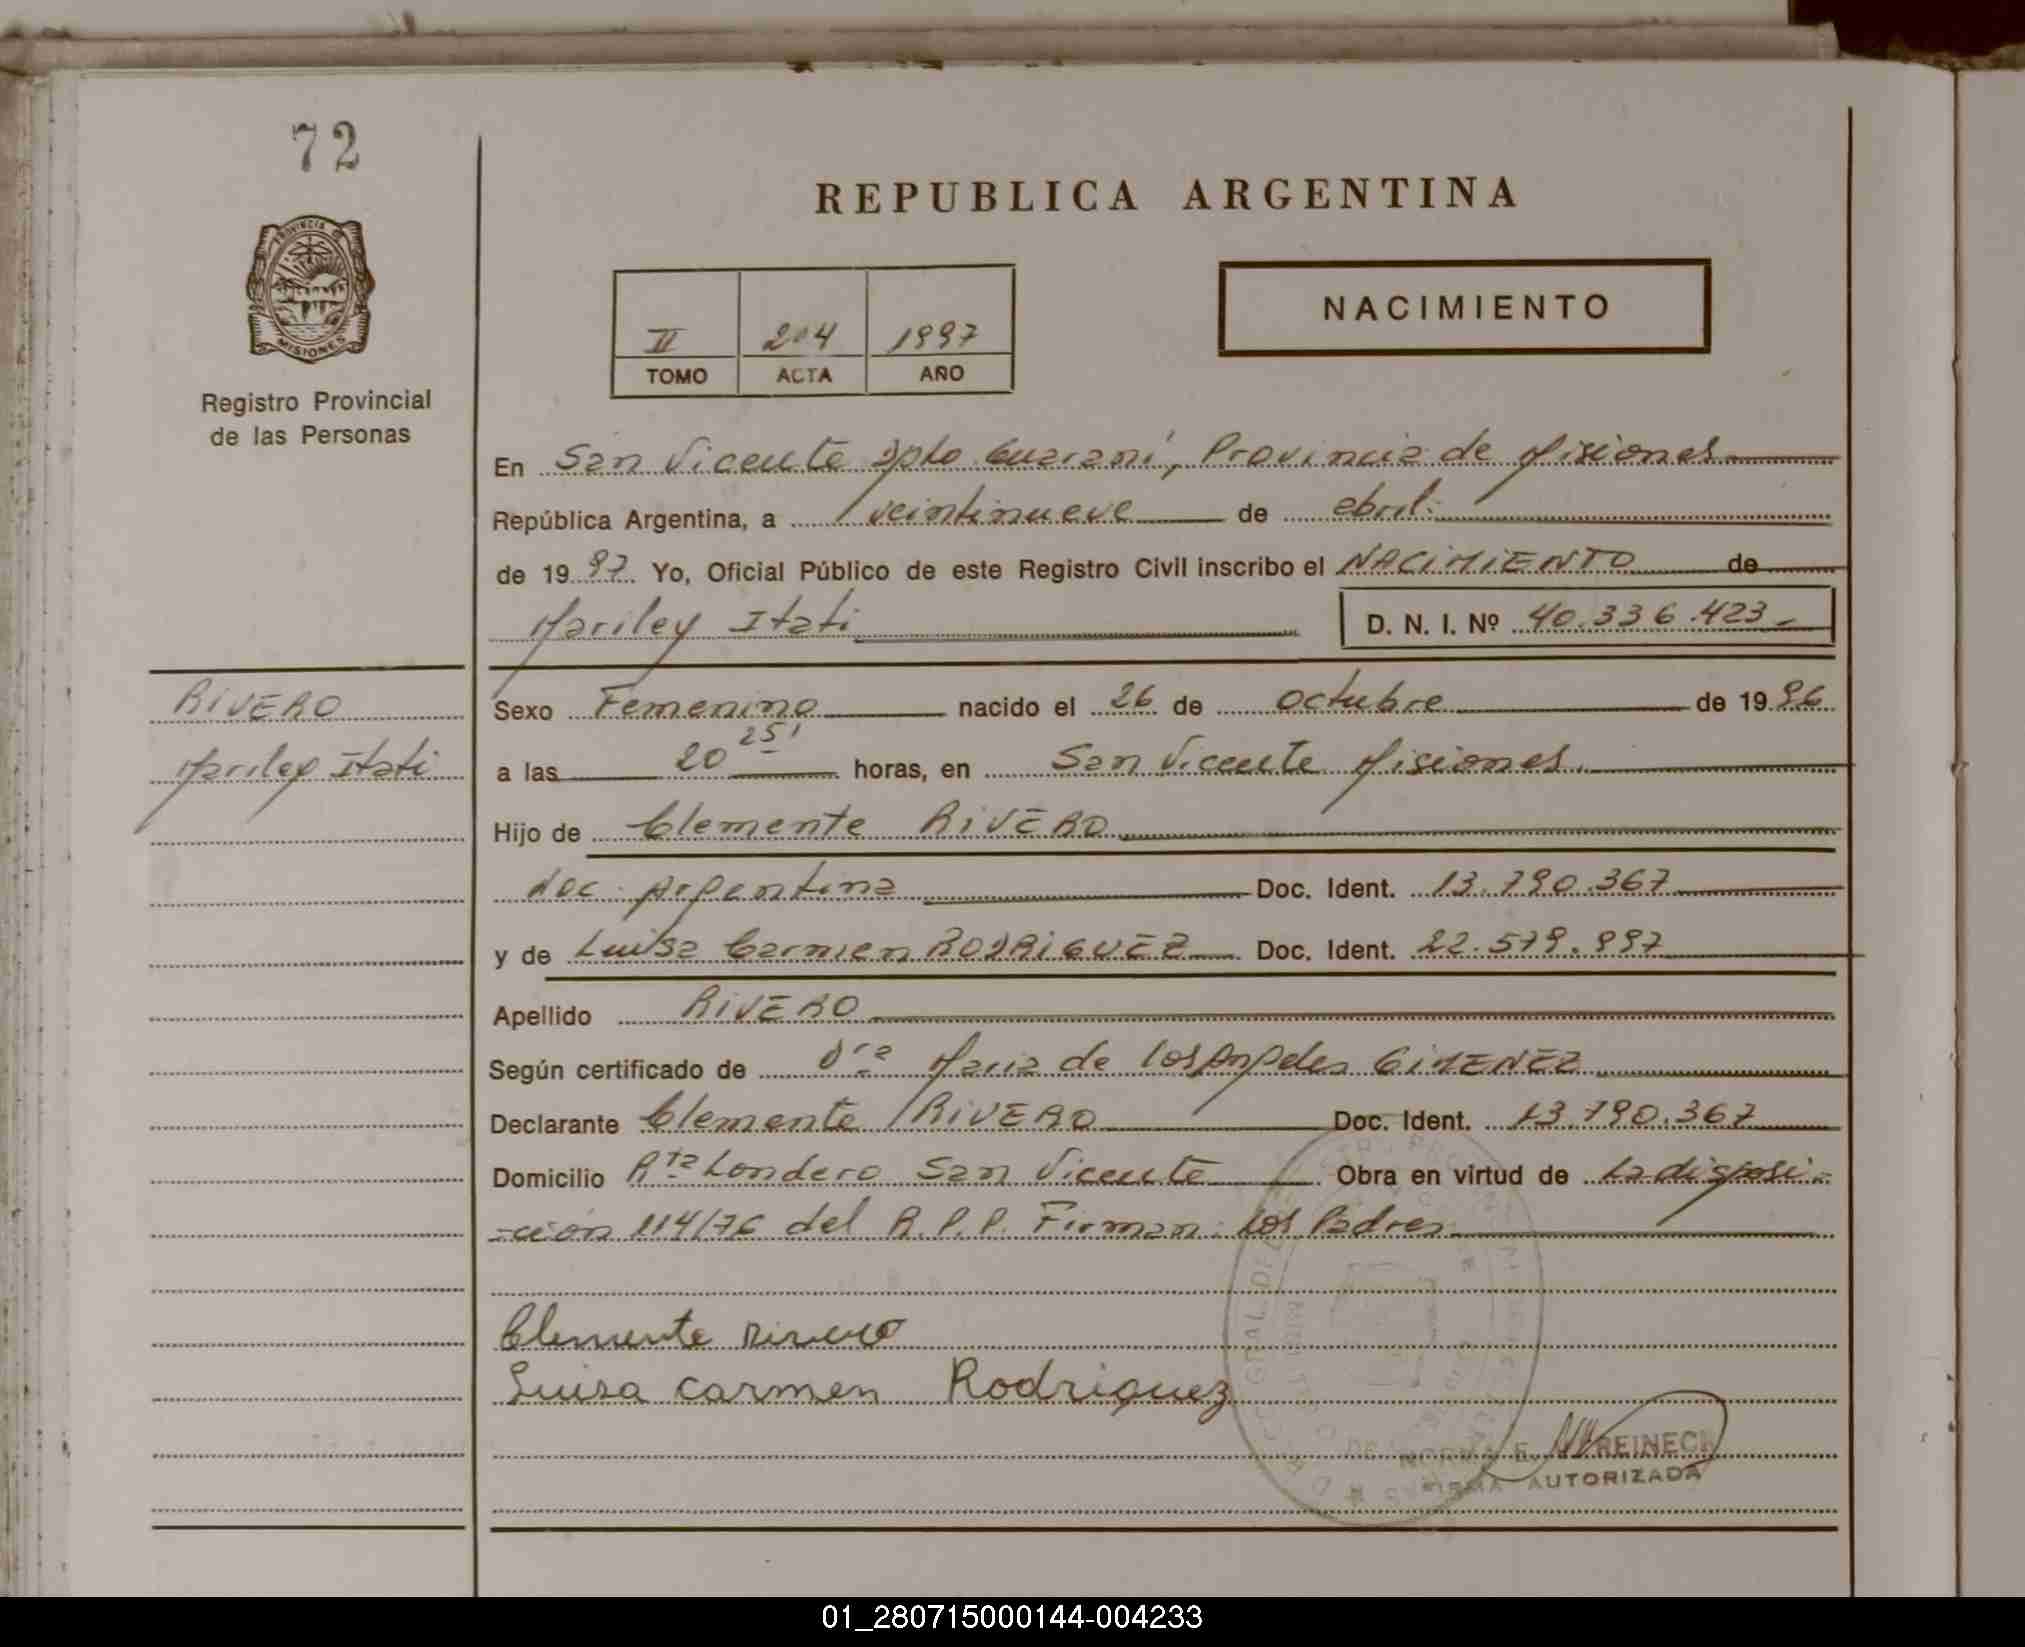 72
REPUBLICA ARGENTINA
PROVINCIA DE
MISIONES
Registro Provincial
de las Personas
NACIMIENTO
II 204 1997
TOMO ACTA AÑO
En San Vicente Dpto Guaraní, Provincia de Misiones
República Argentina, a veintinueve de abril
de 1997 Yo, Oficial Público de este Registro Civil inscribo el NACIMIENTO de
Mariley Itati D. N. I. Nº 40.336.423
RIVERO
Mariley Itati
Sexo Femenino nacido el 26 de octubre de 1996
a las 20 25' horas, en San Vicente Misiones.
Hijo de Clemente RIVERO
nac. Argentina Doc. Ident. 13.790.367
y de Luisa Carmen RODRIGUEZ Doc. Ident. 22.579.997
Apellido RIVERO
Según certificado de Dra Maria de los Angeles GIMENEZ
Declarante Clemente RIVERO Doc. Ident. 13.790.367
Domicilio Rta Londero San Vicente Obra en virtud de La disposi-
-ción 114/76 del R.P.P. Firman: los Padres
Clemente rivero
Luisa carmen Rodriguez
NORMA E. REINECK
FIRMA AUTORIZADA
01_280715000144-004233